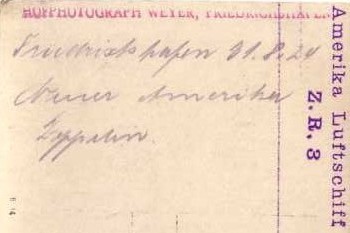 HOFPHOTOGRAPH WEYER, FRIEDRICHSHAFEN
Friedrichshafen 31.8.24
Neuer Amerika
Zeppelin.
Amerika Luftschiff
Z.R.3